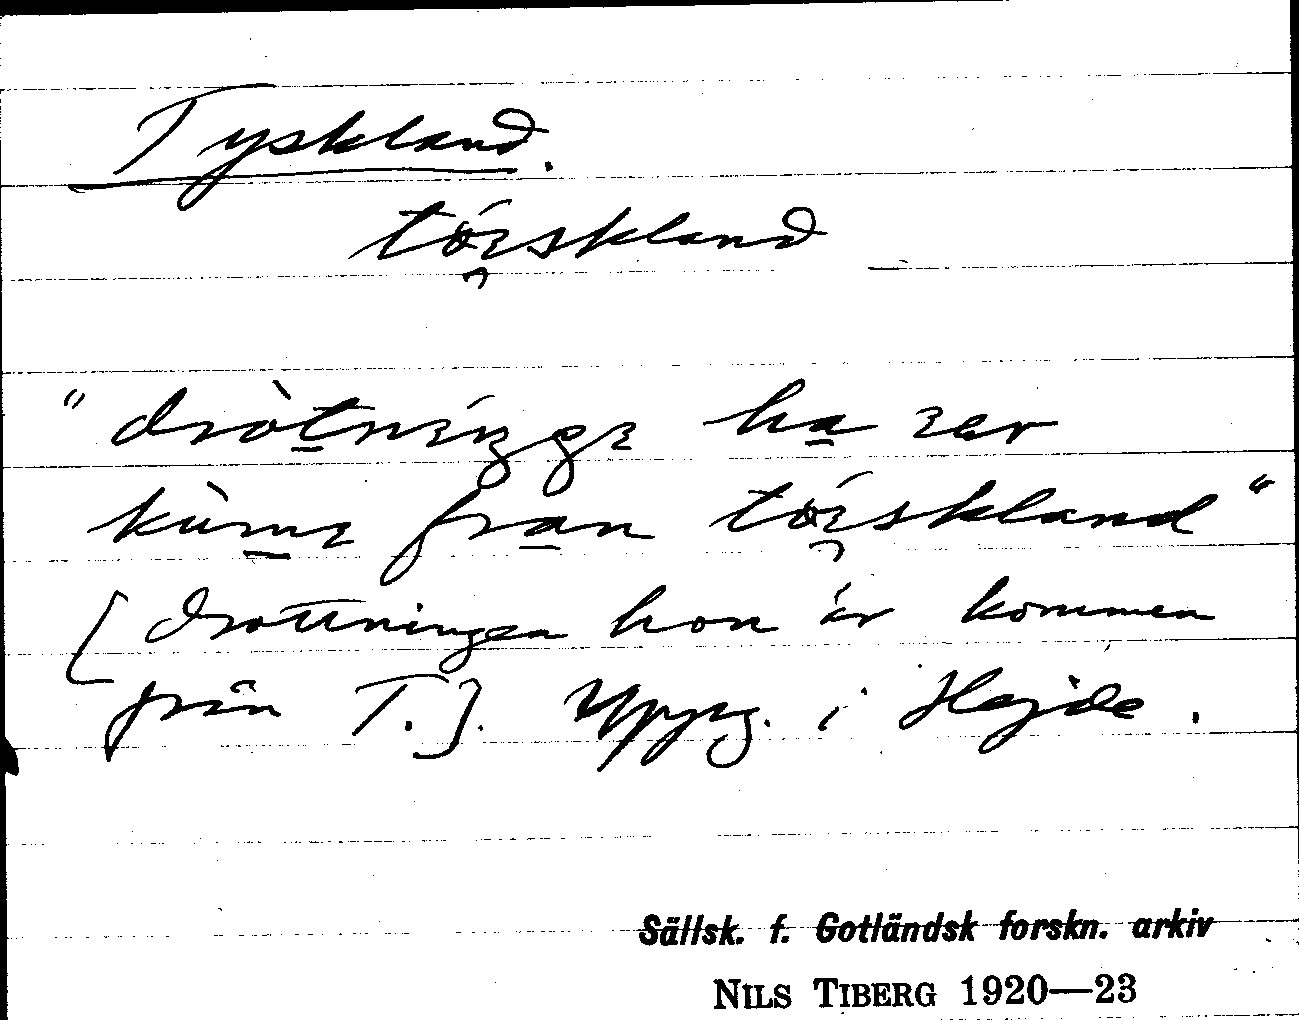 Tyskland.
tóiskland
"dròtningge ha ær
kùmə fran tóiskland"
[drottningen hon är kommen
från T.]. Uppg. i Hejde.
Sällsk. f. Gotländsk forskn. arkiv
NILS TIBERG 1920—23